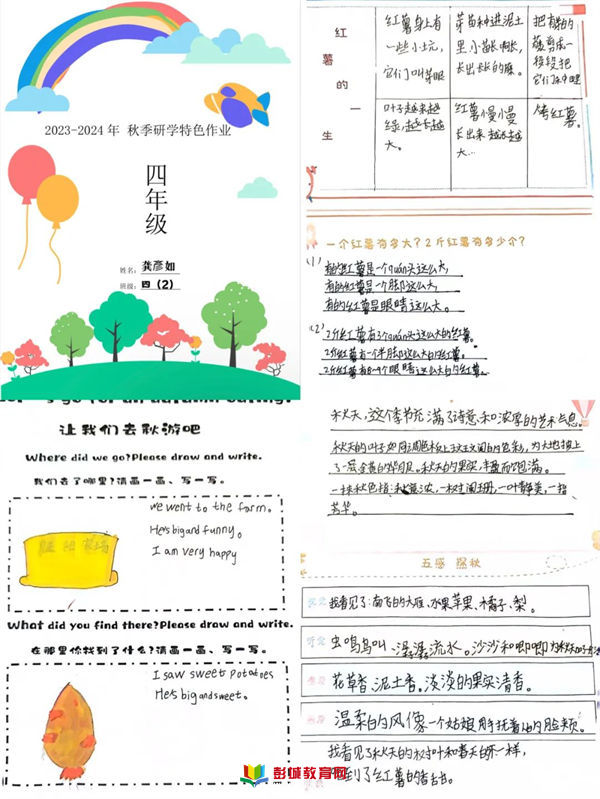 2023-2024年 秋季研学特色作业
四年级
姓名: 龚彦如
班级: 四（2）
红薯的一生
红薯身上有
一些小土元,
它们叫芽眼
芽苗种进泥土
里,小苗长啊长,
长出长长的藤。
叶子越来越
绿,越长越
大。
红薯慢慢
长出来,越长越
大…
烤红薯。
一个红薯有多大？2斤红薯有多少个？
(1)
有的红薯是一个quán头这么大,
有的红薯是一个脚这么大,
有的红薯是眼睛这么大。
(2)
2斤红薯有3个quán头这么大的红薯。
2斤红薯有一个半脚这么大的红薯。
2斤红薯有8-9个眼睛这么大的红薯。
让我们去秋游吧
Where did we go?Please draw and write.
我们去了哪里?请画一画、写一写。
we went to the farm.
He's big and funny.
I am very happy
What did you find there?Please draw and write.
在那里你找到了什么?请画一画、写一写。
I saw sweet potatoes
He's big and sweet.
秋天,这个季节充满了诗意和浓厚的艺术气息。
了一层金黄的外衣。秋天的果实,丰盈而饱满。
芳华。
五感 探秋
我看见了:南飞的大雁、水果苹果、橘子、梨。
虫鸣鸟叫、潺潺流水。沙沙和唧唧
花草香、泥土香。淡淡的果实清香。
温柔的风像一个姑娘用手抚着我的脸颊。
我看见了秋天的树叶和春天的不一样,
到了红薯的
彭城教育网